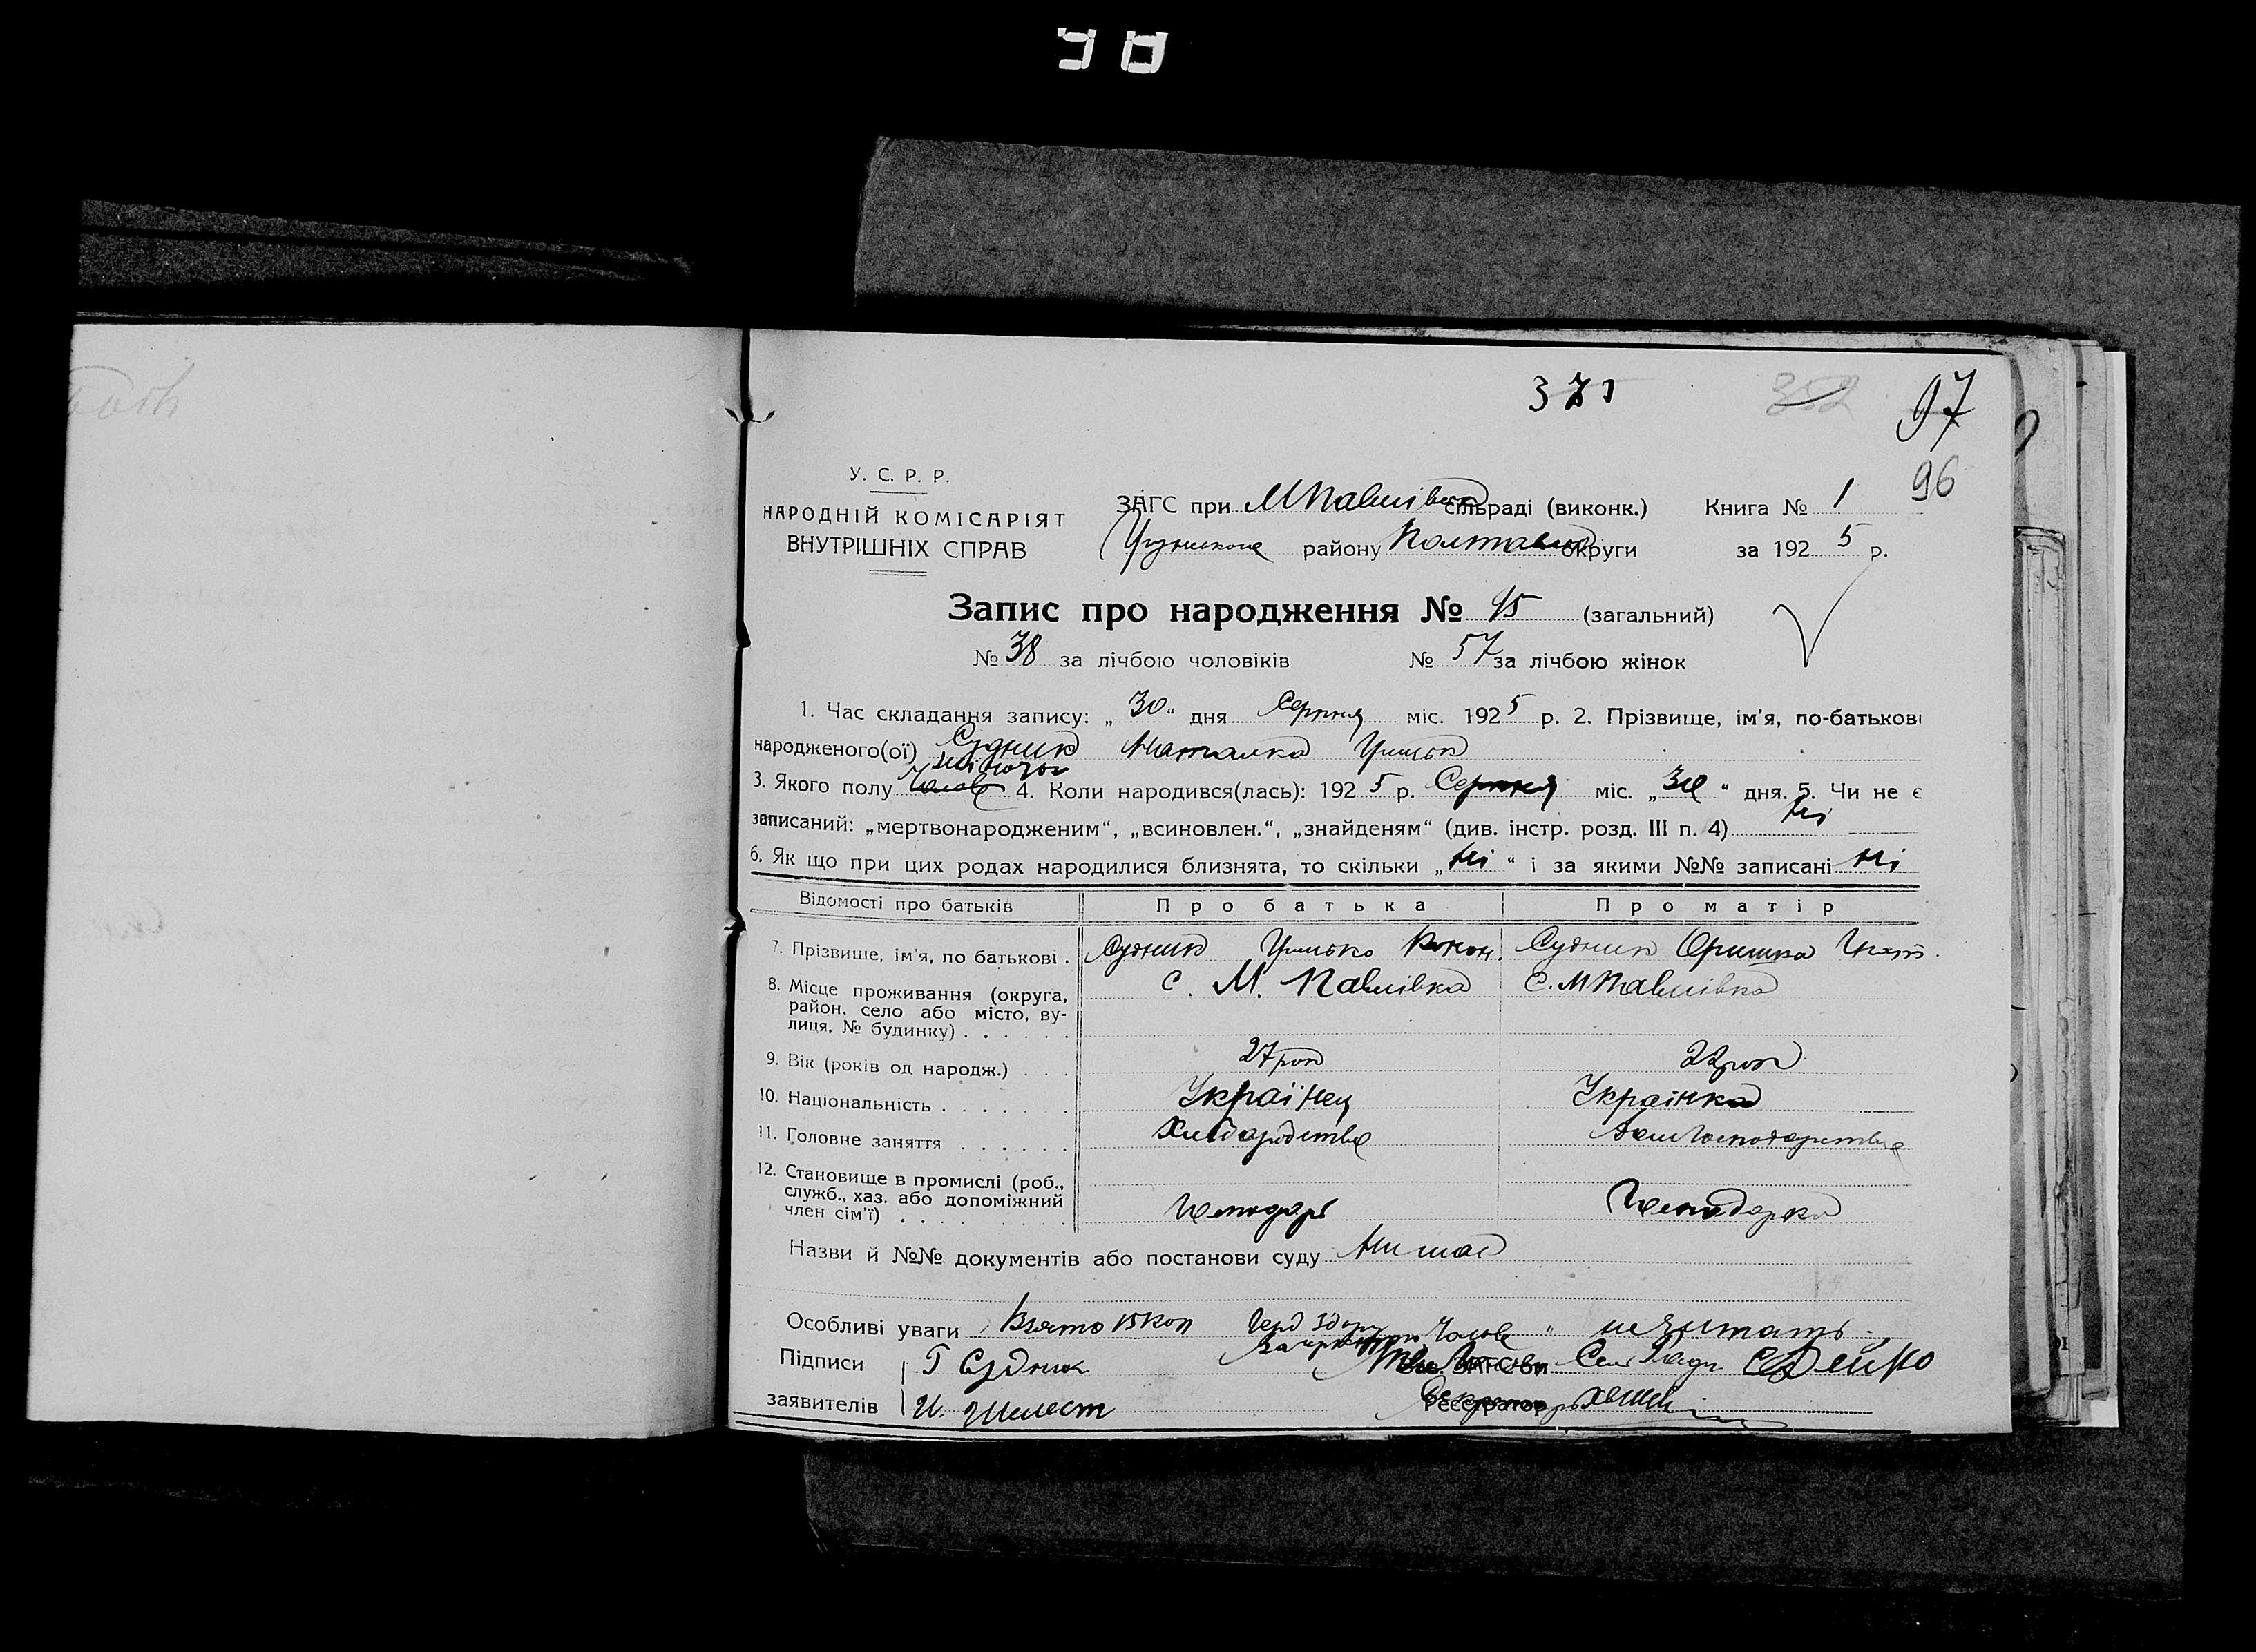 98
371 352 97
96
У. С. Р. Р.
НАРОДНІЙ КОМІСАРІЯТ
ВНУТРІШНІХ СПРАВ
ЗАГС при МПавлівськ сільраді (виконк.) Книга № 1
району Полтавсь округи за 192 5 р.
Запис про народження № 95 (загальний)
№ 38 за лічбою чоловіків № 57 за лічбою жінок
1. Час складання запису: „ 30 “ дня Серпня міс. 192 5 р. 2. Прізвище, ім’я, по-батькові
народженого(ої) Судник Наталка Грицьк
жіночої
3. Якого полу Чолов 4. Коли народився(лась): 192 5 р. Серпня міс. „ 30 “ дня. 5. Чи не є
записаний: „мертвонародженим“, „всиновлен.“, „знайденям“ (див. інстр. розд. III п. 4) Ні
6. Як що при цих родах народилися близнята, то скільки „ Ні “ і за якими №№ записані Ні
Відомості про батьків Про батька Про матір
7. Прізвише, ім’я, по батькові . Судник Грицько Судник Оришка
8. Місце проживання (округа, район, село або місто, ву- лиця, № будинку) . . . . . . с. М. Павлівка С. МПавлівка
9. Вік (років од народж.) . . . 27 рок 22 рок
10. Національність . . . . . . Українец Українка
11. Головне заняття . . . . . . Хліборобство
12. Становище в промислі (роб., служб., хаз. або допоміжний член сім’ї) . . . . . . Господарь Господарка
Назви й №№ документів або постанови суду Нимає
Особливі уваги Взято 15 коп Чолов " нечитать
Підписи Г Судник Зав. ЗАГС’ом Сель Ради
заявителів И. Шелест Реєстратор